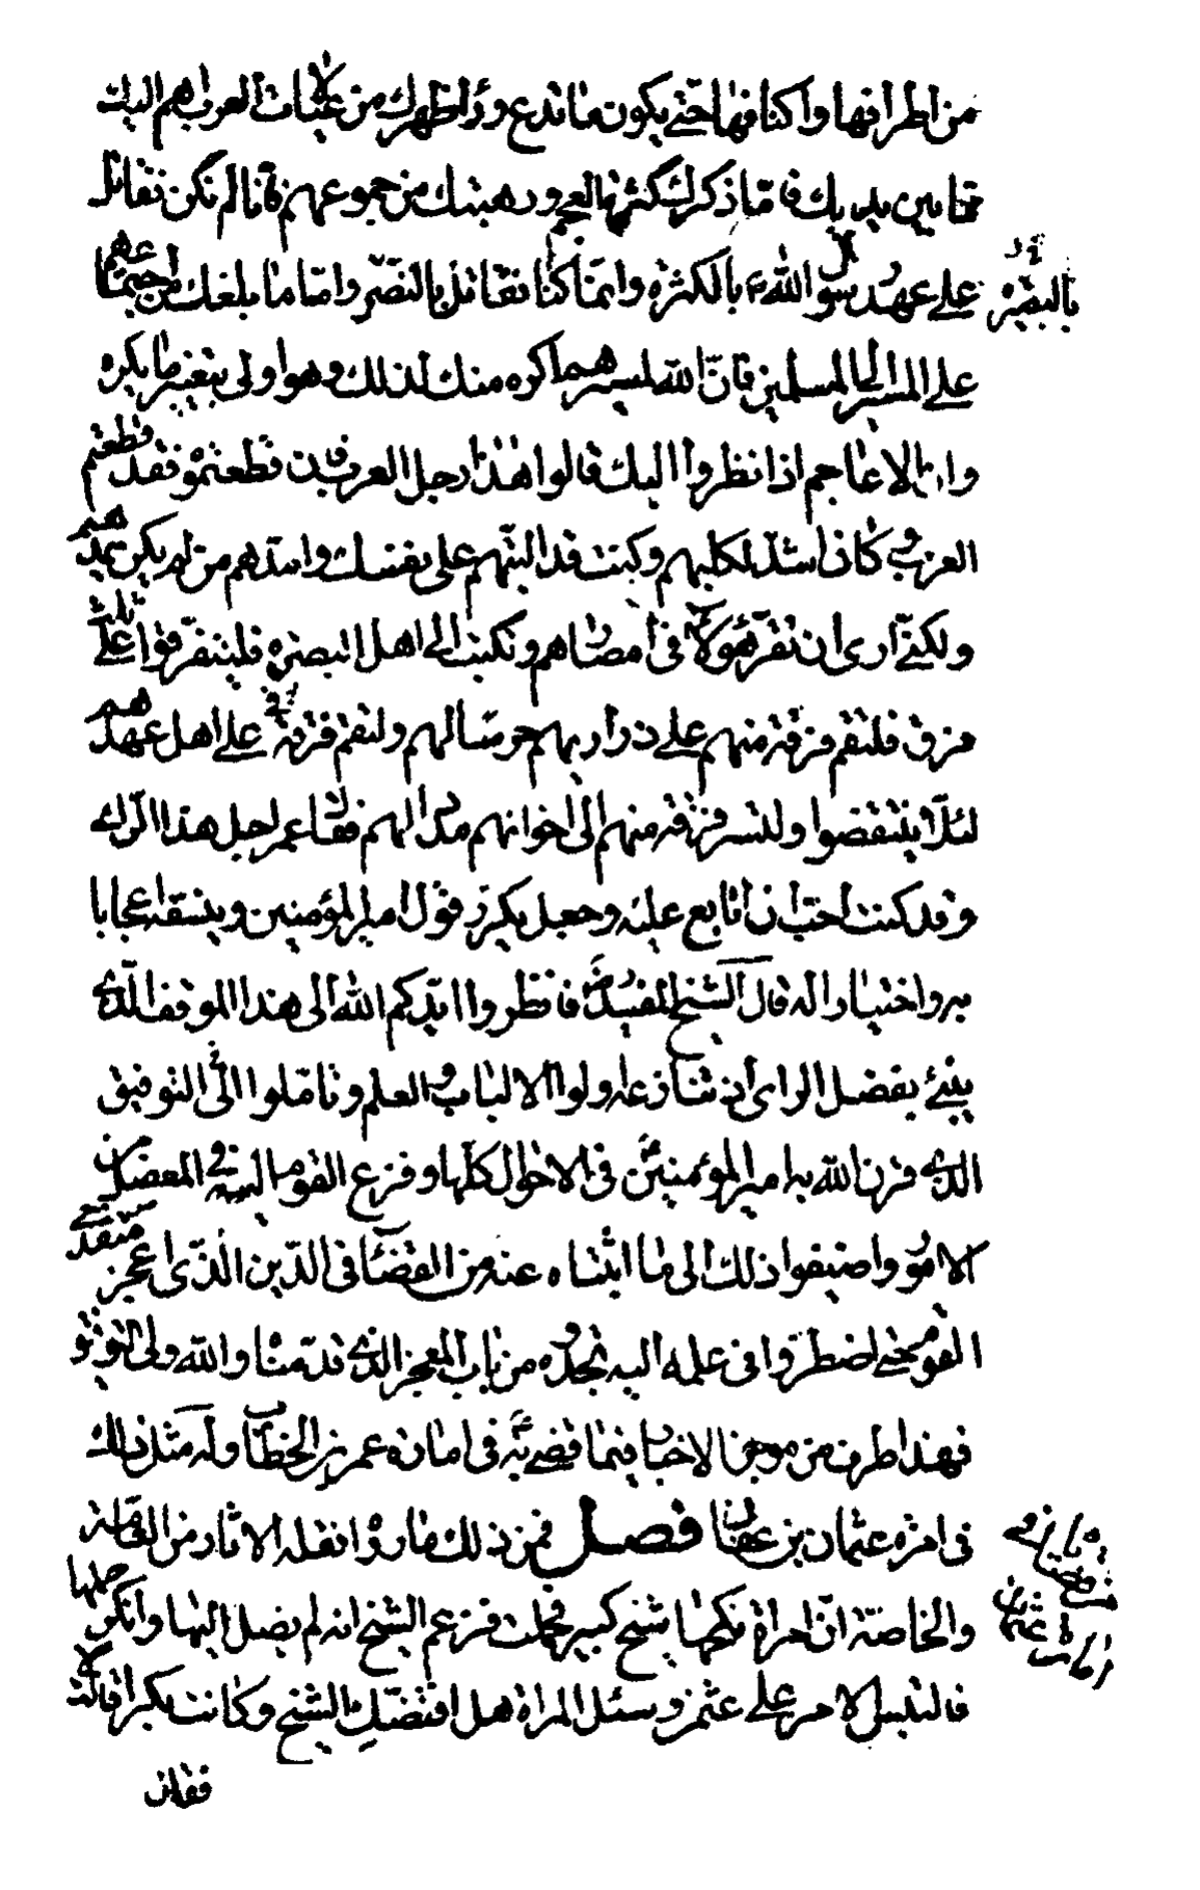 من اطرافها واكنافها حتى يكون ما تدع وراء ظهرك من عيالات العرب اهم اليك
مما بين يديك فامّا ذكرك كثرة العجم ورهبتك من جموعهم فانا لم نكن نقاتل
على عهد رسول الله ع بالكثرة وانما كنا نقاتل بالنصر وامّا ما بلغك من اجتماعهم
بالبصيرة
على المسير الى المسلمين فانّ الله لمسيرهم اكره منك لذلك وهو اولى بتغيير ما يكره
وان الاعاجم اذا نظروا اليك قالوا هذا رجل العرب فان قطعتموه فقد قطعتم
العرب وكان اشدّ لكلبهم وكنت قد البتهم على نفسك وامدهم من لم يكن يمدهم
ولكنّى ارى ان تقرّ هؤلاء فى امصارهم وتكتب الى اهل البصرة فليتفرقوا على ثلث
فرق فلتقم فرقة منهم على ذراريهم حرسا لهم ولتقم فرقة فى على اهل عهدهم
لئلّا ينتقضوا ولتسر فرقة منهم الى اخوانهم مددا لهم فقال عمر اجل هذا الراى
وقد كنت احبّ ان اتابع عليه وجعل يكرر قول امير المؤمنين وينسقه اعجابا
به واختيارا له قال الشيخ المفيد فانظروا ايّدكم الله الى هذا الموقف الّذى
ينبئ بفضل الراى اذ تنازعه اولوا الالباب والعلم وتاملوا الى التوفيق
الذى قرن الله به امير المؤمنين فى الاحوال كلّها وفزع القوم اليه فى المعضل من
الامور واضيفوا ذلك الى ما اثبتناه عنه من القضاء فى الدّين الّذى اعجز متقدمى
القوم حتى اضطروا فى علمه اليه تجدوه من باب المعجز الذى قدمناه والله ولى التوفيق
فهذا طرف من موجز الاخبار فيما قضى به فى امارة عمر بن الخطاب وله مثل ذلك
فى امرة عثمان بن عفان فصل فمن ذلك ما رووا نقلة الاثار من العامة
والخاصّة انّ امراة نكحها شيخ كبير فحملت فزعم الشيخ انه لم يصل اليها وانكر حملها
فالتبس الامر على عثمن وسئل المراة هل افتضّك الشيخ وكانت بكرا قالت لا
فقال